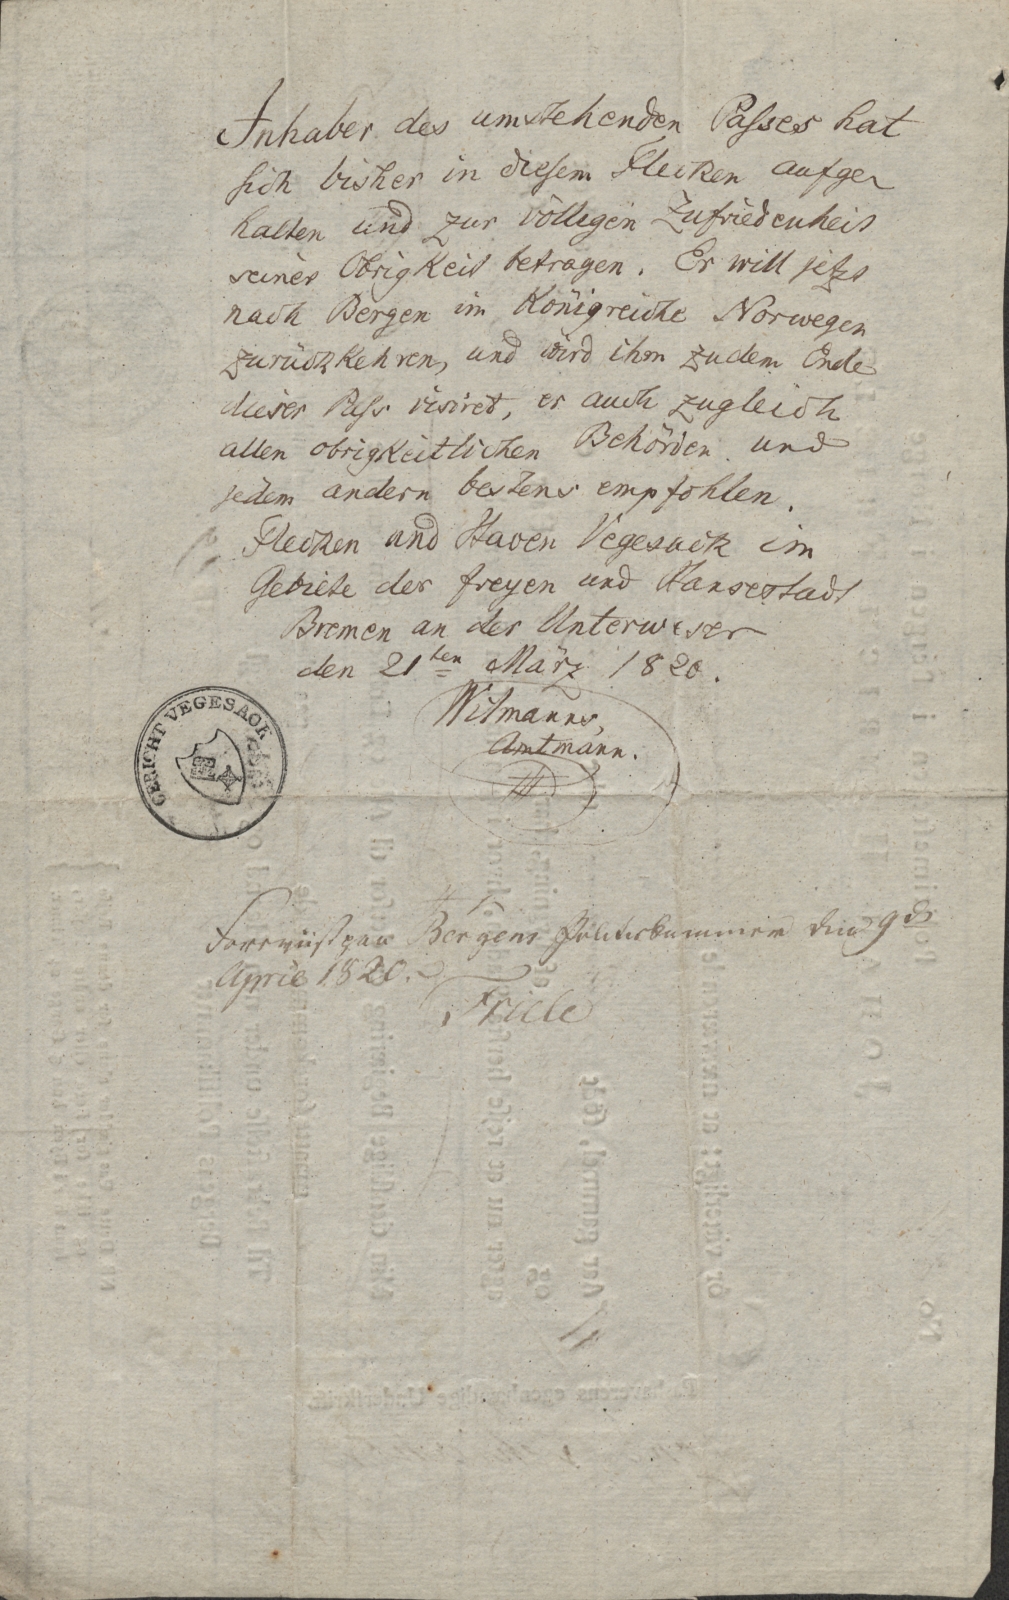 Inhaber des umstehenden Passes hat
sich bisher in diesem Flecken aufge
halten und zur völligen Zufriedenheit
seiner Obrigkeit betragen. Er will jetzt
nach Bergen im Königreiche Norwegen
zurückkehren, und wird ihm zu dem Ende
dieser Pass visiret, er auch zugleich
allen obrigkeitlichen Behörden und
jedem andern bestens empfohlen.
Flecken und Haven Vegesack im
Gebiete der freyen und Hansestadt
Bremen an der Unterweser
den 21ten März 1820.
Wilmanns,
Amtmann.
GERICHT VEGESACK
Foreviist paa Bergens Politiekammer den 9de
April 1820.
Friele